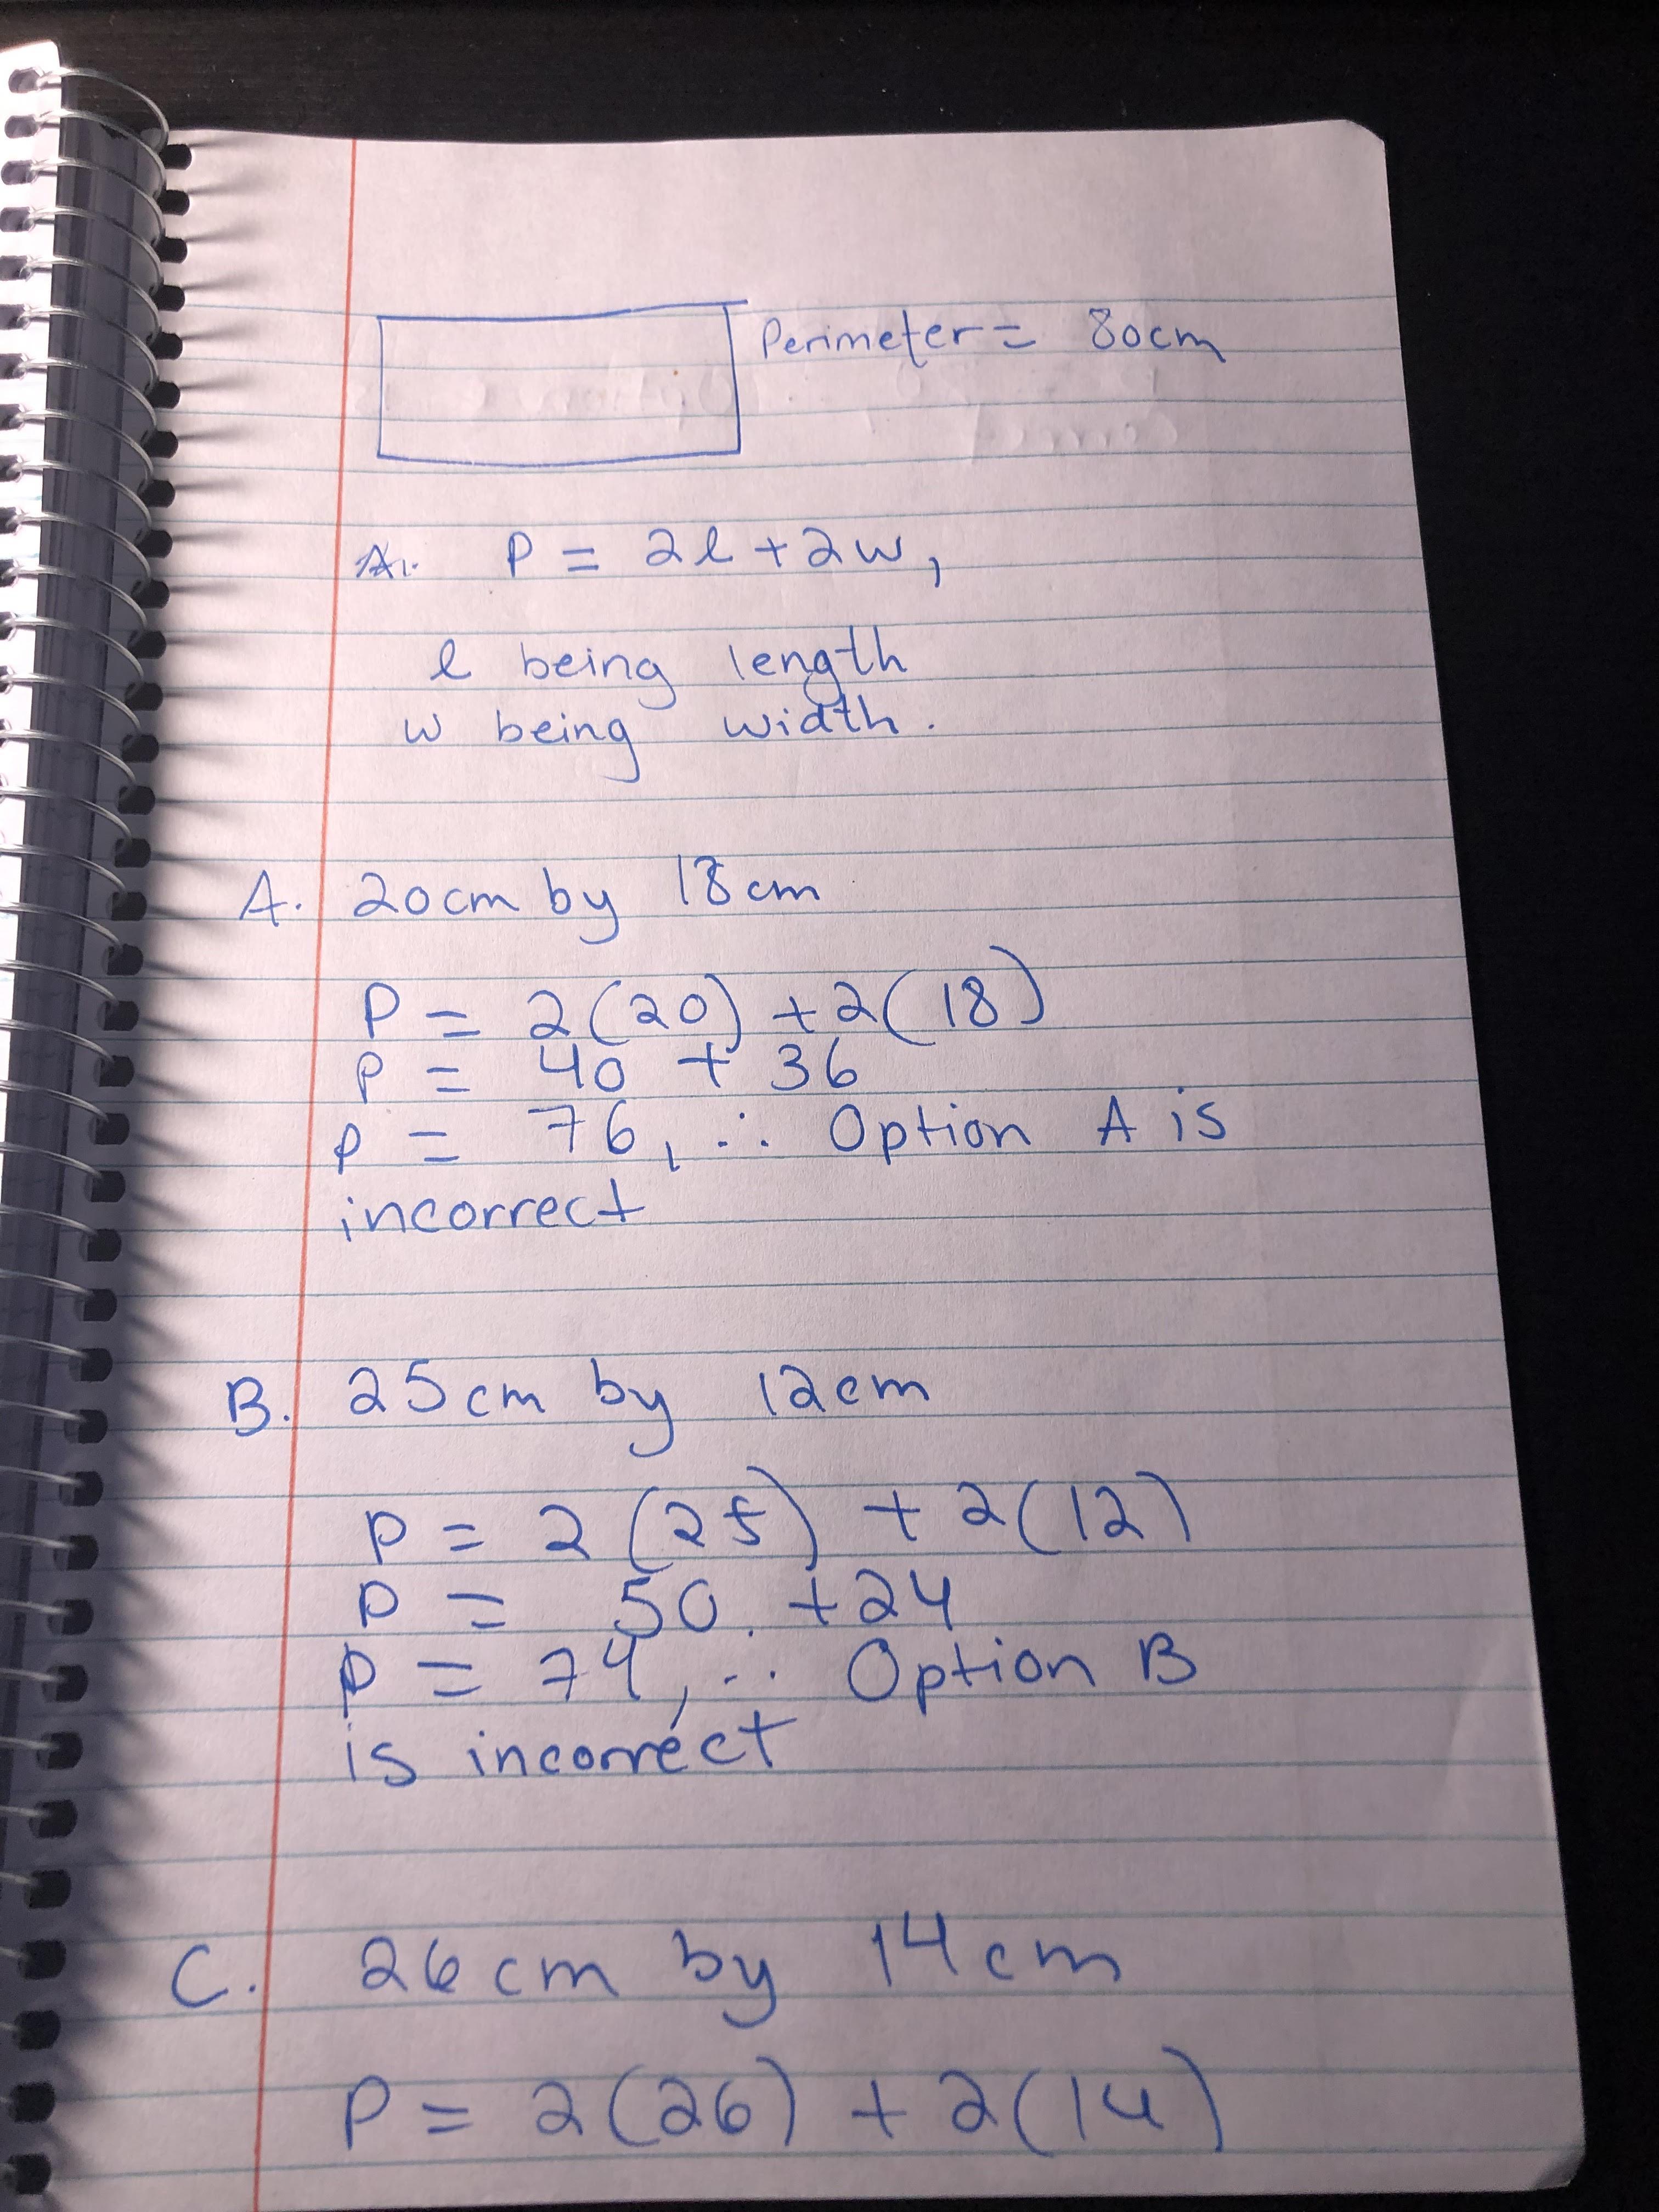 Perimeter = 80cm
P = 2l + 2w,
l being length
w being width.
A. 20cm by 18cm
P = 2(20) + 2(18)
P = 40 + 36
P = 76, ∴ Option A is
incorrect
B. 25cm by 12cm
P = 2(25) + 2(12)
P = 50 + 24
P = 74, ∴ Option B
is incorrect
C. 26cm by 14cm
P = 2(26) + 2(14)